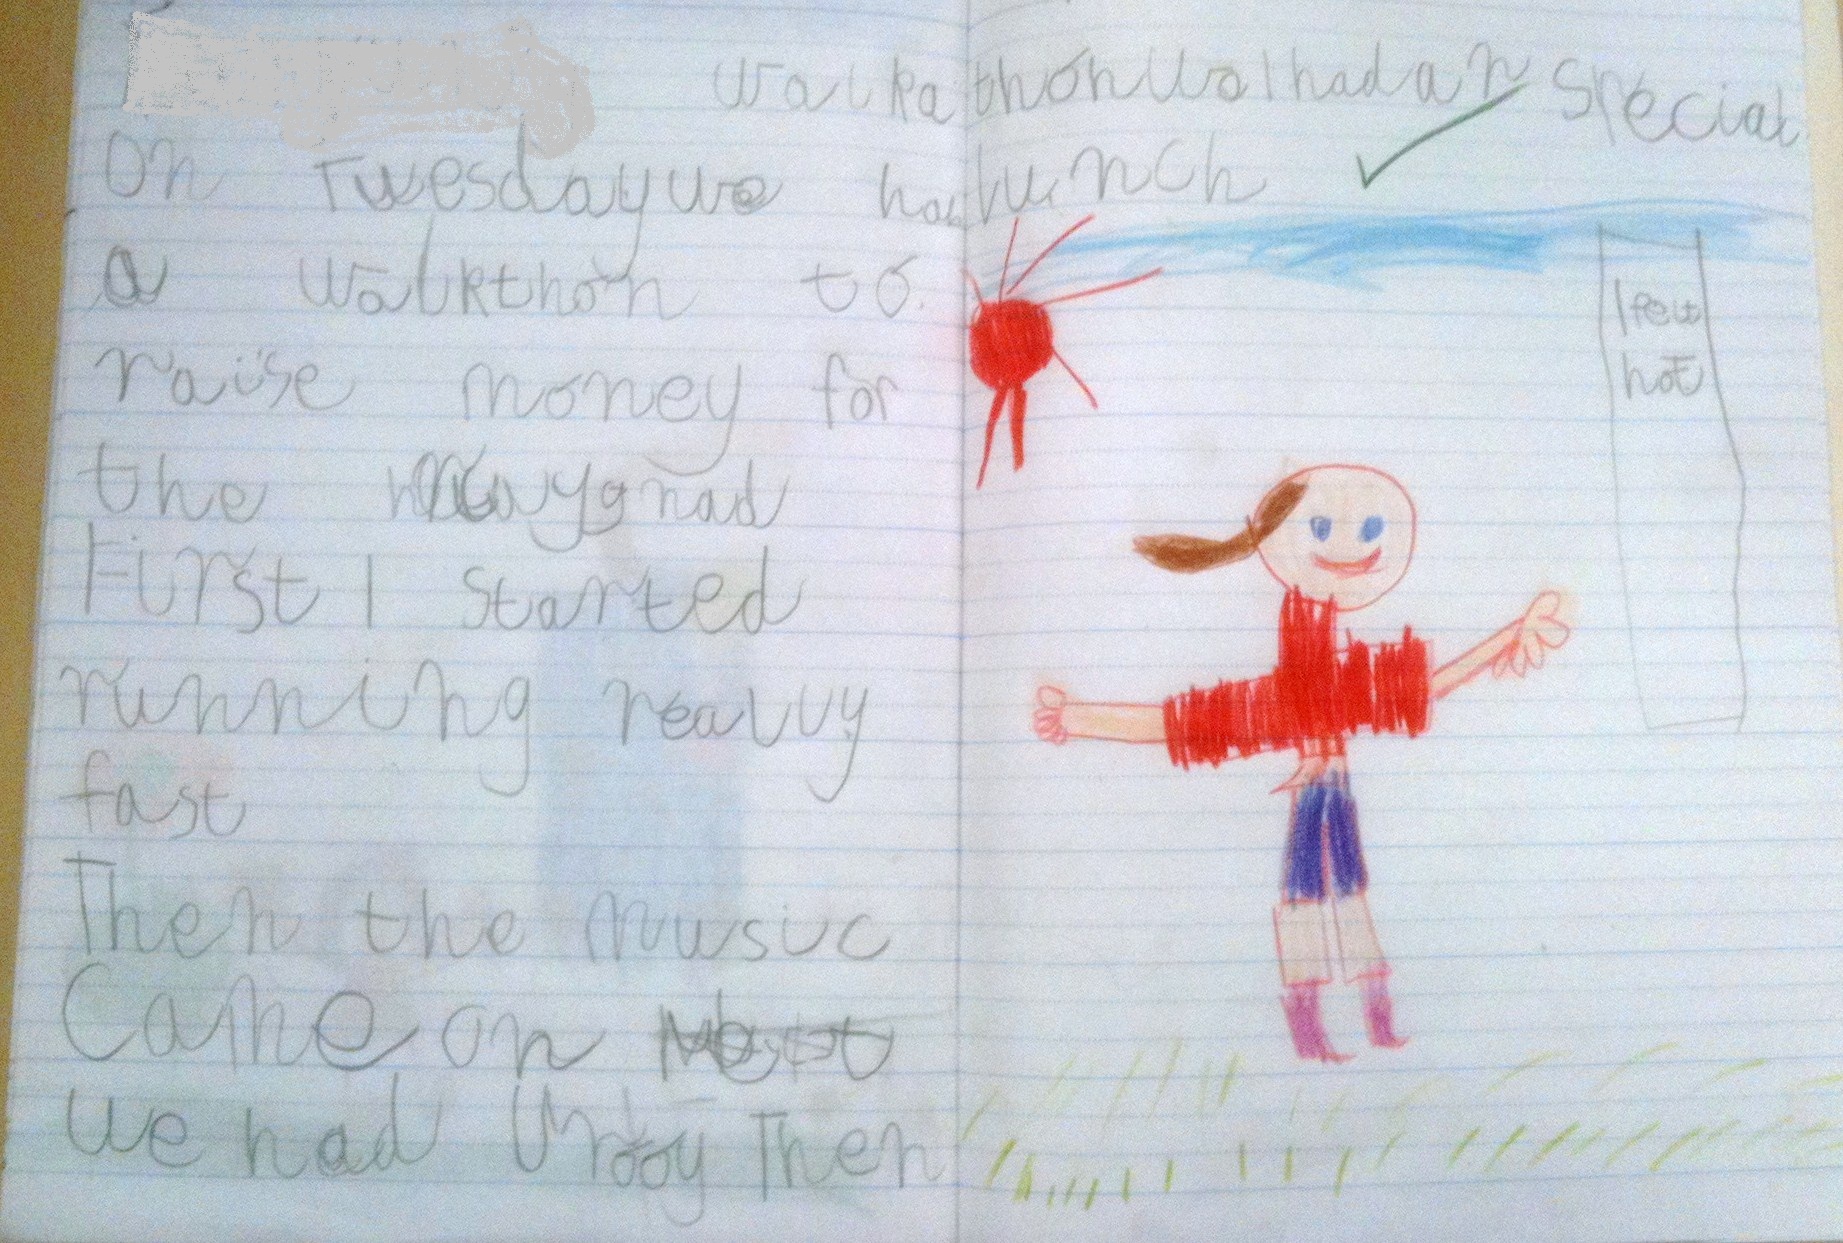 Walkathon
On Tuesday we had
a Walkthon to
raise money for
the
First I started
running really
fast
Then the music
Came on
We had Then
had an Special
lunch
I few
hot